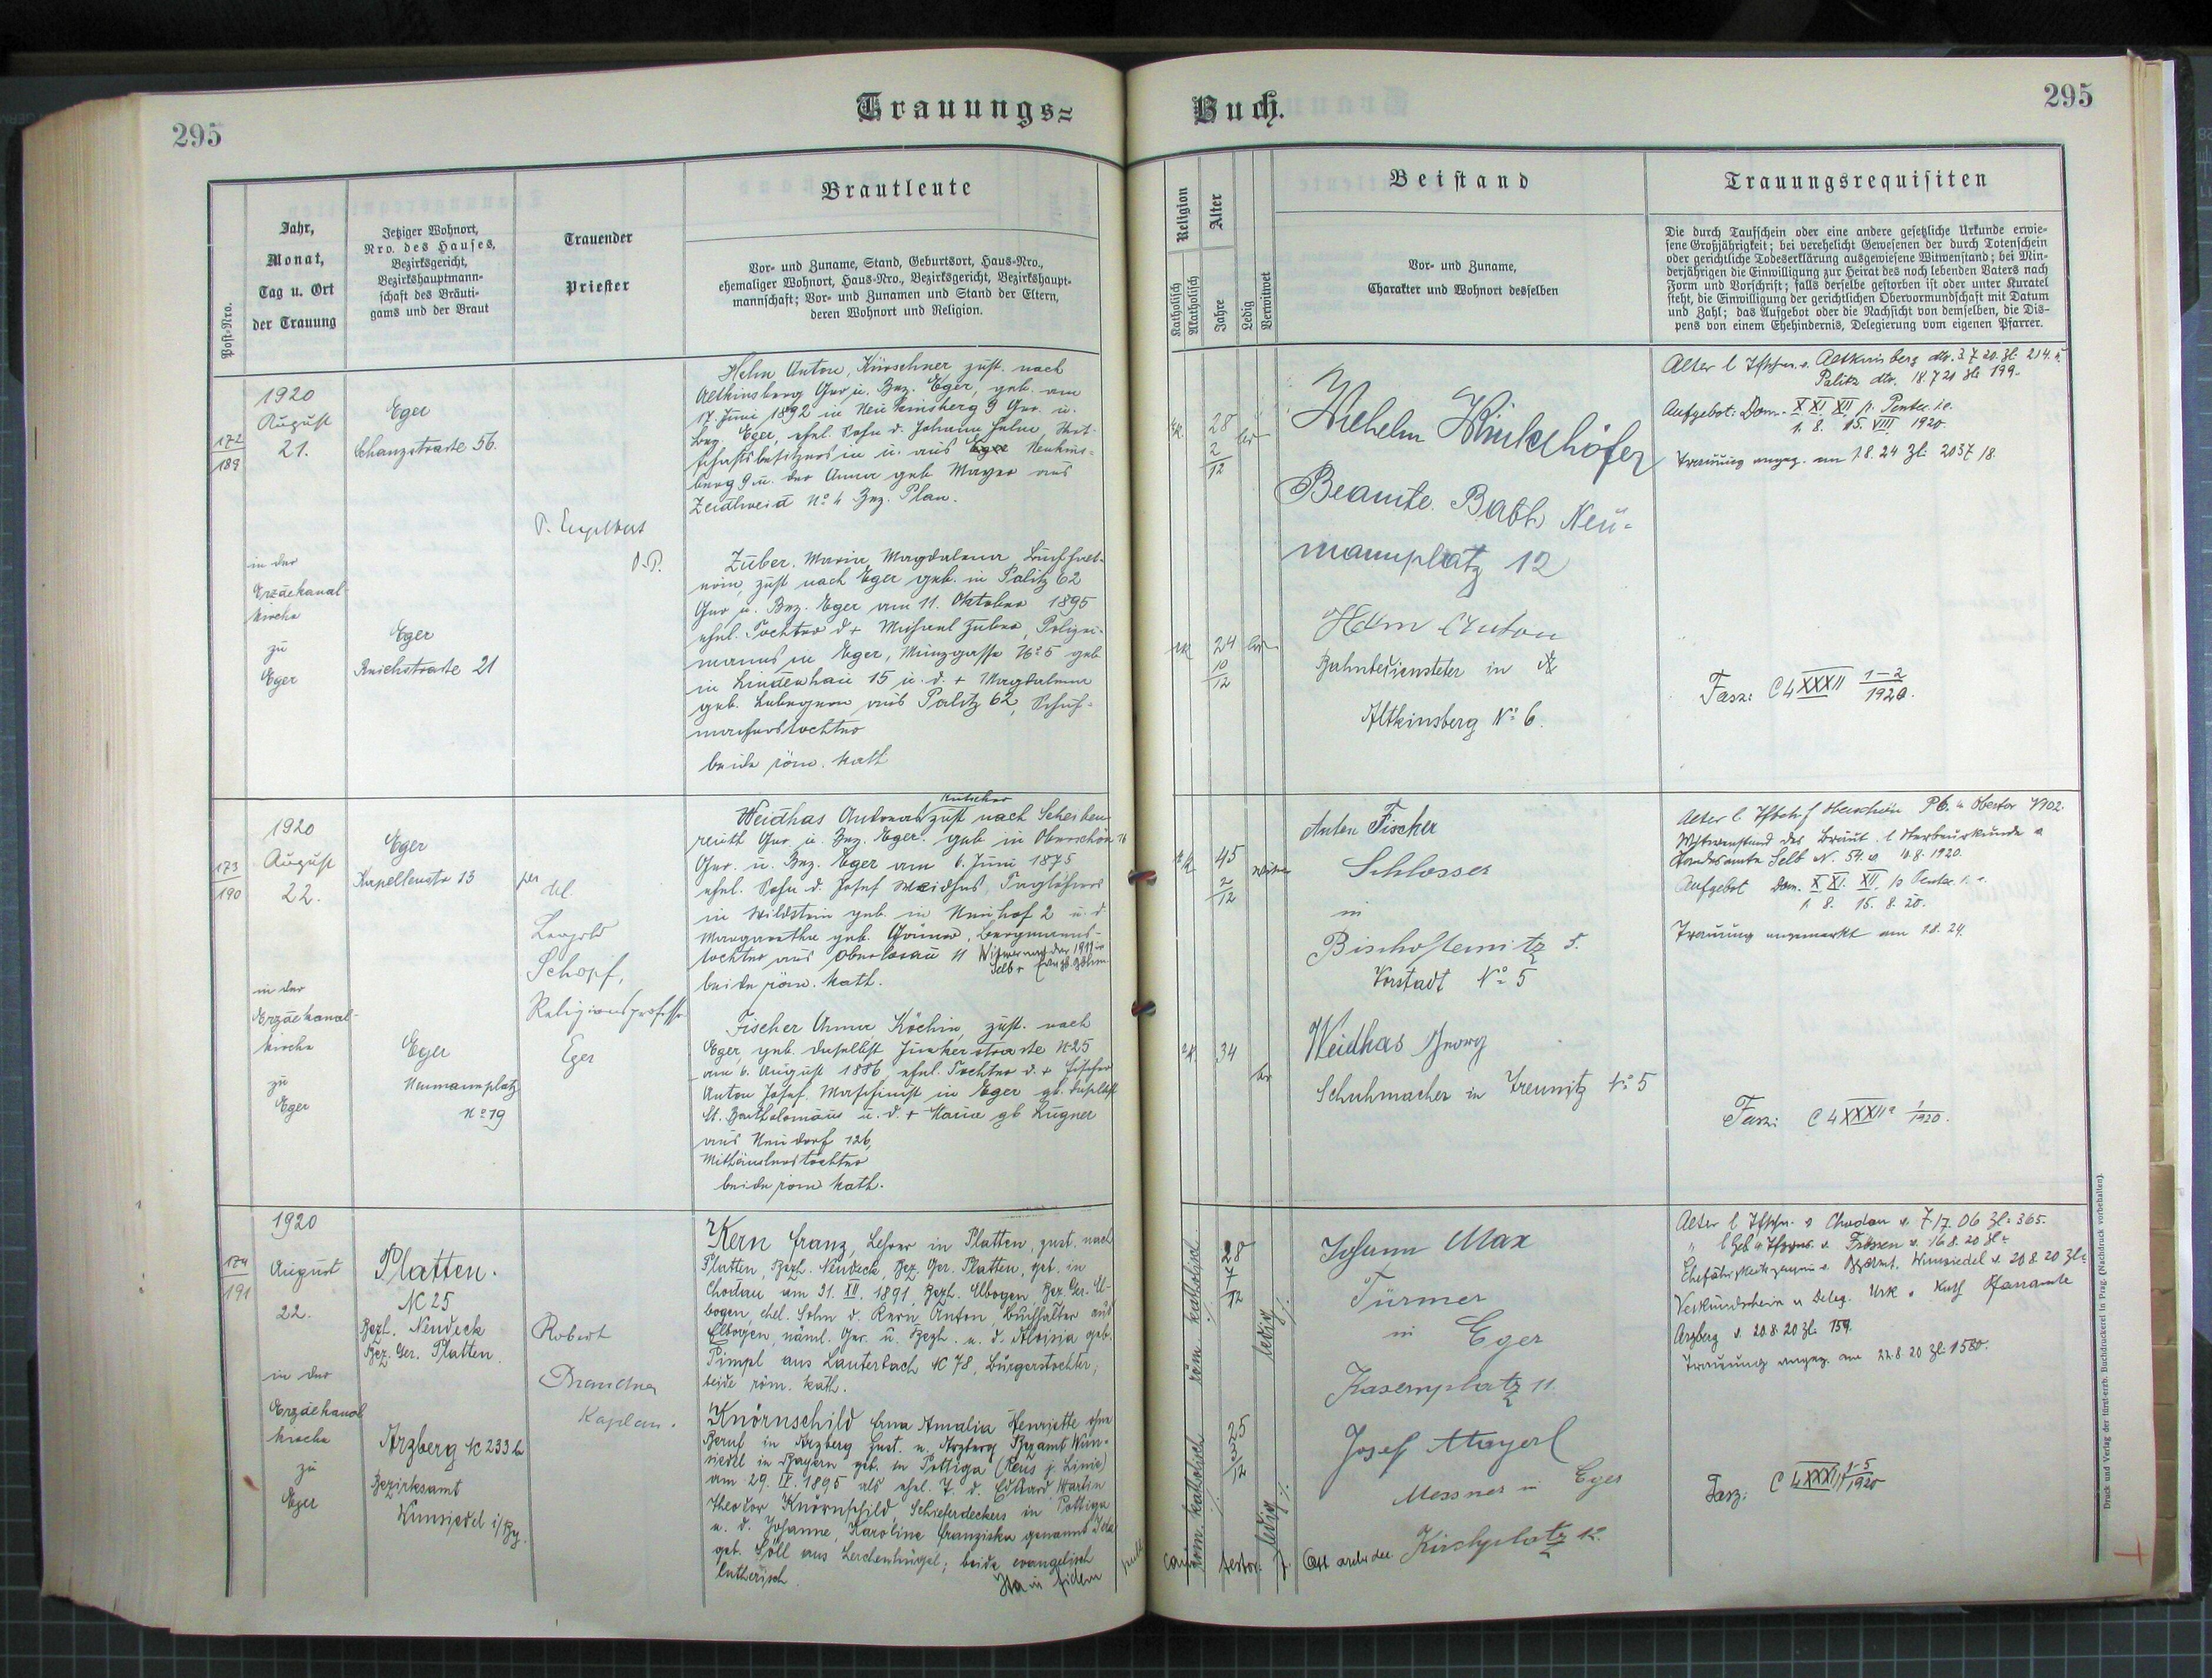 295
Trauungs=
Post-Nro.
Jahr,
Monat,
Tag u. Ort
der Trauung
Jetziger Wohnort,
Nro. des Hauses,
Bezirksgericht,
Bezirkshauptmann-
schaft des Bräuti-
gams und der Braut
Trauender
Priester
Brautleute
Vor- und Zuname, Stand, Geburtsort, Haus-Nro.,
ehemaliger Wohnort, Haus-Nro., Bezirksgericht, Bezirkshaupt-
mannschaft; Vor- und Zunamen und Stand der Eltern,
deren Wohnort und Religion.
172
189
1920
August
21.
in der
Erzdekanal-
kirche
zu
Eger
Eger
Schanzstraße 56.
Eger
Reichstraße 21
P. Engelbert
O.P.
Helm Anton, Kürschner zust. nach
Altkinsberg Ger u. Bez. Eger, geb. am
17. Juni 1892 in Neukinsberg 9 Ger. u.
Bez. Eger, ehel. Sohn d. Johann Helm Wirt-
schaftsbesitzers in u. aus Neukins-
berg 9 u. der Anna geb Mayer aus
Zeidlweid No 4 Bez. Plan.
Zuber Maria Magdalena Buchhalt-
erin, zust nach Eger geb. in Palitz 62
Ger u. Bez. Eger am 11. Oktober 1895
ehel. Tochter d + Michael Zuber, Polizei-
manns in Eger, Münzgasse No 5 geb
in Lindenhau 15 u. d. + Magdalena
geb. aus Palitz 62, Schuh-
macherstochter
beide röm. kath
173
190
1920
August
22.
in der
Erzdekanal-
kirche
zu
Eger
Eger
Kapellenstr 13
Eger
Neumannplatz
No 19
per
del
Leopold
Schopf,
Religionsprofessor
Eger
Kutscher
Weidhas Andreas zust nach Scheiben-
reuth Ger u Bez. Eger. geb in Oberschön 16
Ger. u. Bez. Eger am 6. Juni 1875
ehel. Sohn d. Josef Weidhas, Taglöhners
in Wildstein geb. in Neuhof 2 u. d.
Margaretha geb. Grüner, Bergmanns-
tochter aus Oberlosau 11
beide röm. kath.
Fischer Anna Köchin, zust. nach
Eger, geb. daselbst Junkerstraße No 25
am 6. August 1886, ehel. Tochter d. + Fischer
Anton Josef Maschinist in Eger gb. daselbst
St. Bartholomäus u. d. + Maria gb Lugner
aus Neudorf 126,
Mithäuslerstochter
beide röm kath.
174
191
1920
August
22.
in der
Erzdekanal
kirche
zu
Eger
Platten.
No 25
Bezh. Neudeck
Bez. Ger. Platten.
Arzberg No 233b
Bezirksamt
Wunsiedel i/By.
Robert
Brandner
Kaplan.
Kern Franz, Lehrer in Platten, zust. nach
Platten, Bezh. Neudeck, Bez. Ger. Platten, geb. in
Chodau am 31. XII. 1891, Bezh. Elbogen, Bez. Ger. El-
bogen, ehel. Sohn d. Kern Anton, Buchhalter aus
Elbogen, näml. Ger. u. Bezh. u. d. Aloisia geb.
Pimpl aus Lauterbach No 78, Bürgerstochter;
beide röm. kath.
Knörnschild Erna Amalia Henriette ohne
Beruf in Arzberg zust. n. Arzberg Bezamt Wun-
siedel in Bayern geb. in Pottiga (Reus j. Linie)
am 29. IV. 1895 als ehel. T. d. Eduard Martin
Theodor Knörnschild, Schieferdeckers in Pottiga
u. d. Johanne, Karoline Franziska genannt Ida
geb. Söll aus Lerchenhügel; beide evangelisch
lutherisch.
Ita in fidem
Buch.
295
Religion
Katholisch
Akatholisch
Alter
Jahre
Ledig
Verwitwet
Beistand
Vor- und Zuname,
Charakter und Wohnort desselben
Trauungsrequisiten
Die durch Taufschein oder eine andere gesetzliche Urkunde erwie-
sene Großjährigkeit; bei verehelicht Gewesenen der durch Totenschein
oder gerichtliche Todeserklärung ausgewiesene Witwenstand; bei Min-
derjährigen die Einwilligung zur Heirat des noch lebenden Vaters nach
Form und Vorschrift; falls derselbe gestorben ist oder unter Kuratel
steht, die Einwilligung der gerichtlichen Obervormundschaft mit Datum
und Zahl; das Aufgebot oder die Nachsicht von demselben, die Dis-
pens von einem Ehehindernis, Delegierung vom eigenen Pfarrer.
28
2
12
24
10
12
Wilhelm Winkelhöfer
Beamte. Babh Neu-
mannplatz 12
Helm Anton
Bahnbediensteter in
Altkinsberg No 6.
Alter l Tfschn. v. Altkinsberg dto. 3. 7 20. Zl. 214. u.
Palitz dto. 18. 7 20 Zl. 199.
Aufgebot: Dom. X XI XII p. Pentec. i.e.
1. 8. 15. VIII 1920.
Trauung angez. am 18. 24 Zl. 2057/8.
Fasz: C 4 XXXII 1-2
1920.
45
2
12
34
Anton Fischer
Schlosser
in
Bischofteinitz 5.
Vorstadt No 5
Weidhas Georg
Schuhmacher in Treunitz No 5
Aufgebot Dom. X. XI. XII. p Pentec. i.e.
1. 8. 15. 8. 20.
Trauung angemerkt am 18. 24.
Fasz: C 4 XXXII 1
1920.
röm. katholisch
28
7
12
ledig
röm. katholisch
25
3
12
ledig
Johann Max
Türmer
in Eger
Kasernplatz 11.
Josef Mayerl
Messner in Eger
Kirchplatz 12.
Alter l Tfschn. v Chodau v. 7/7. 06 Zl. 365.
Verkündschein u Deleg. Urk v. Kath Pfarramte
Arzberg v. 20. 8. 20 Zl. 159.
Trauung angez. am 22. 8 20 Zl. 1580.
Fasz: C 4 XXXII 1-5
1920
Druck und Verlag der fürst-erzb. Buchdruckerei in Prag. (Nachdruck vorbehalten).